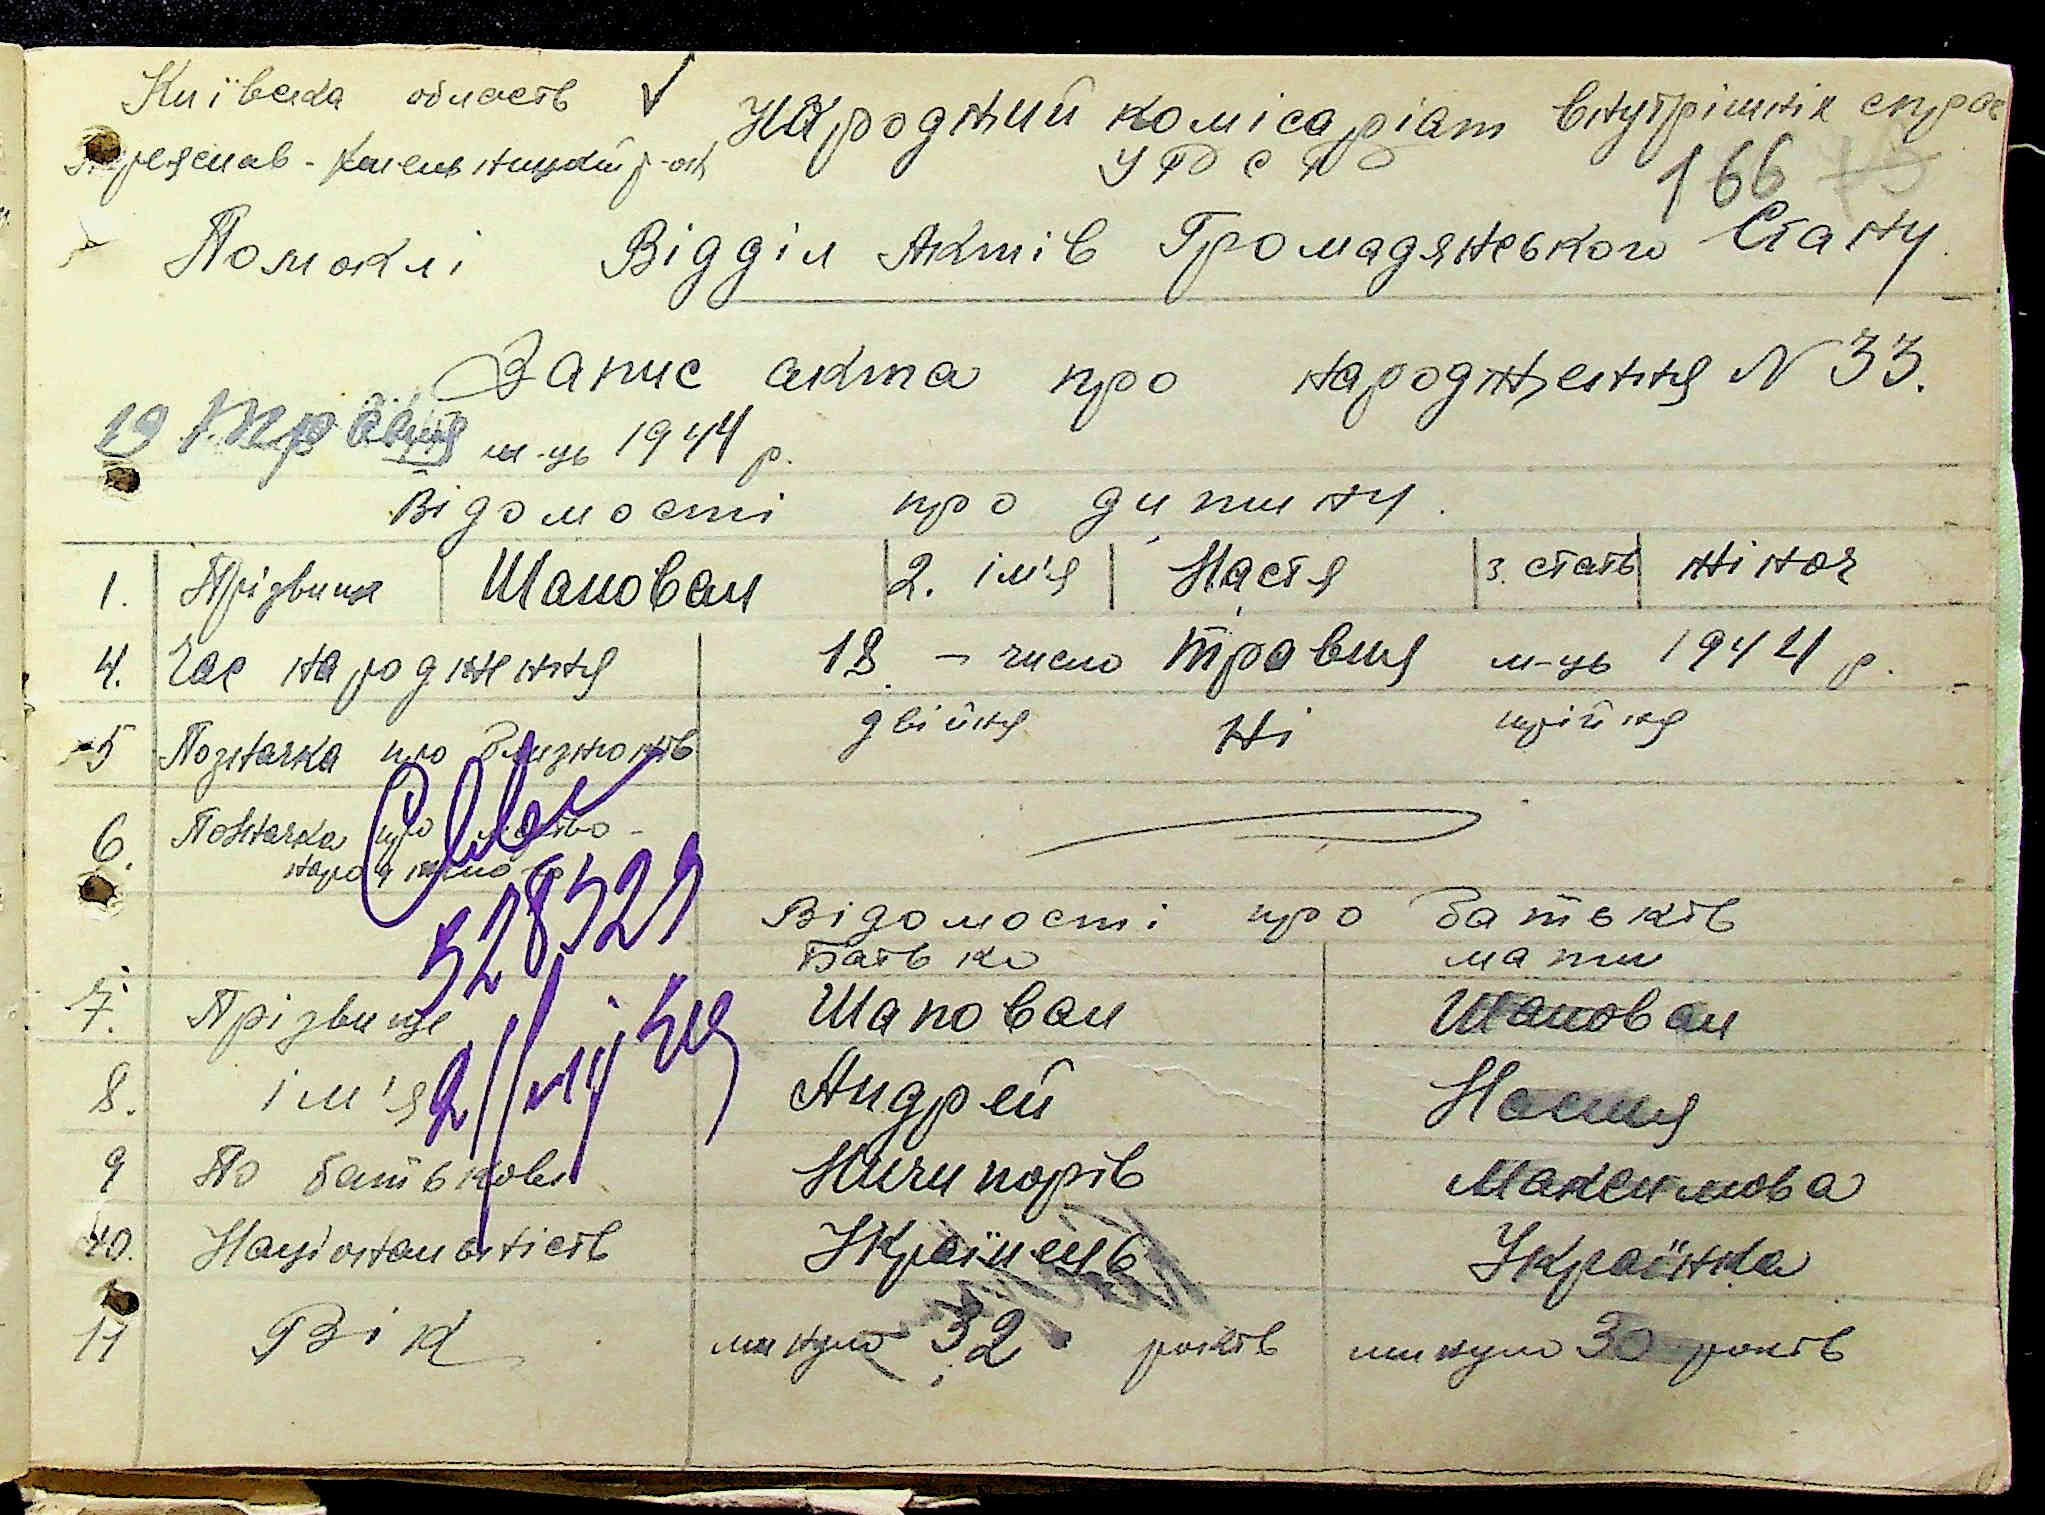 Київска область ✓ Народний комісаріат внутрішніх справ
Переяслав-Хмельницкий р-он УРСР 166
Помоклі Відділ Актів Громадянського Стану
Запис акта про народження N 33.
19 Травня м-ць 1944 р.
Відомості про дитину.
1. Прізвище Шаповал 2. ім'я Настя 3. стать жіноч
4. Час народження 18 - число травня м-ць 1944 р.
5 Позначка про близнюків двійня Ні трійня
6. Позначка про мертво-
народжено
Відомості про батьків
Батько мати
7. Прізвище Шаповал Шаповал
8. ім'я Андрей Настя
9 По батькові Ничипорів Максимова
10. Національність Українець Українка
11 Вік минуло 32 років минуло 30 років
528529